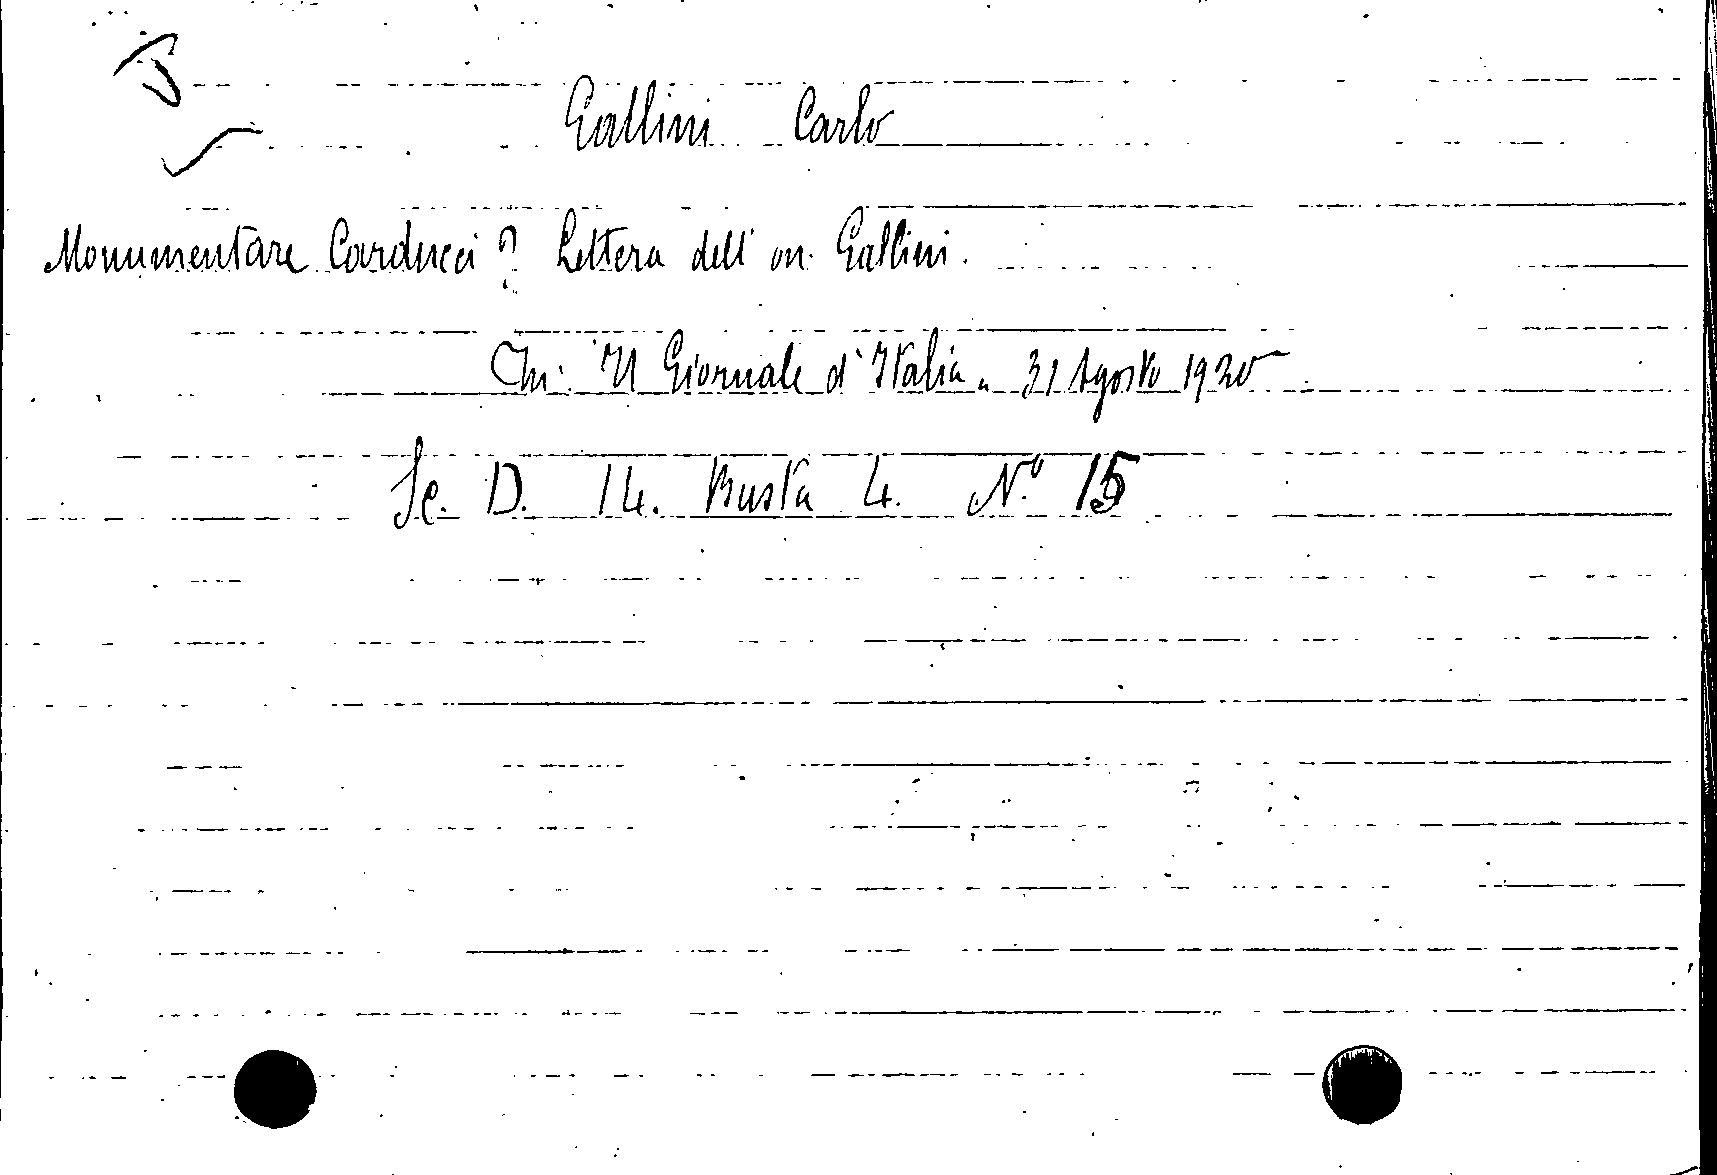 Gallini Carlo
Monumentare Carducci? Lettera dell'on. Gallini.
In: "Il Giornale d'Italia" 31 Agosto 1920
Sc. D. 14. Busta 4. N.° 15